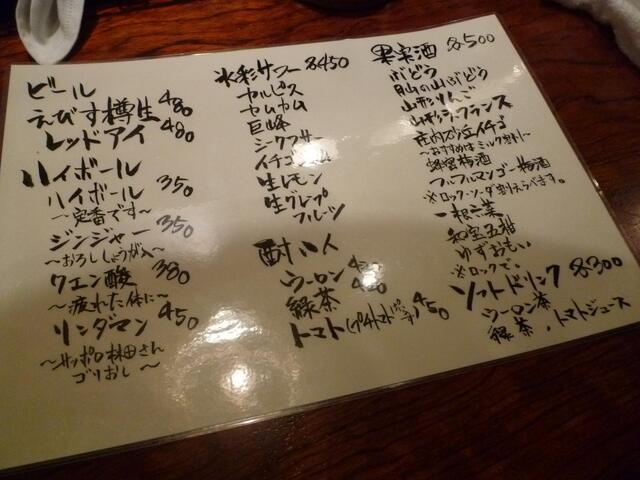 ビール
えびす樽生 480
レッドアイ 480
ハイボール
ハイボール 350
〜定番です〜
ジンジャー 350
〜おろししょうが入〜
クエン酸 380
〜疲れた体に〜
リンダマン 450
〜サッポロ林田さん
ゴリおし〜
氷彩サワー 450
カルピス
カムカム
巨峰
シークワサー
イチゴ
生レモン
生グレープ
フルーツ
酎ハイ
ウーロン
緑茶
トマト 450
果実酒 500
ぶどう
月山の山ぶどう
山形りんご
山形ラ・フランス
庄内砂丘イチゴ
〜おすすめはミルク割り〜
蜂蜜梅酒
フルフルマンゴー梅酒
※ロック・ソーダ割えらべます。
ゆずおもい
※ロックで
ソフトドリンク 300
ウーロン茶
緑茶、トマトジュース